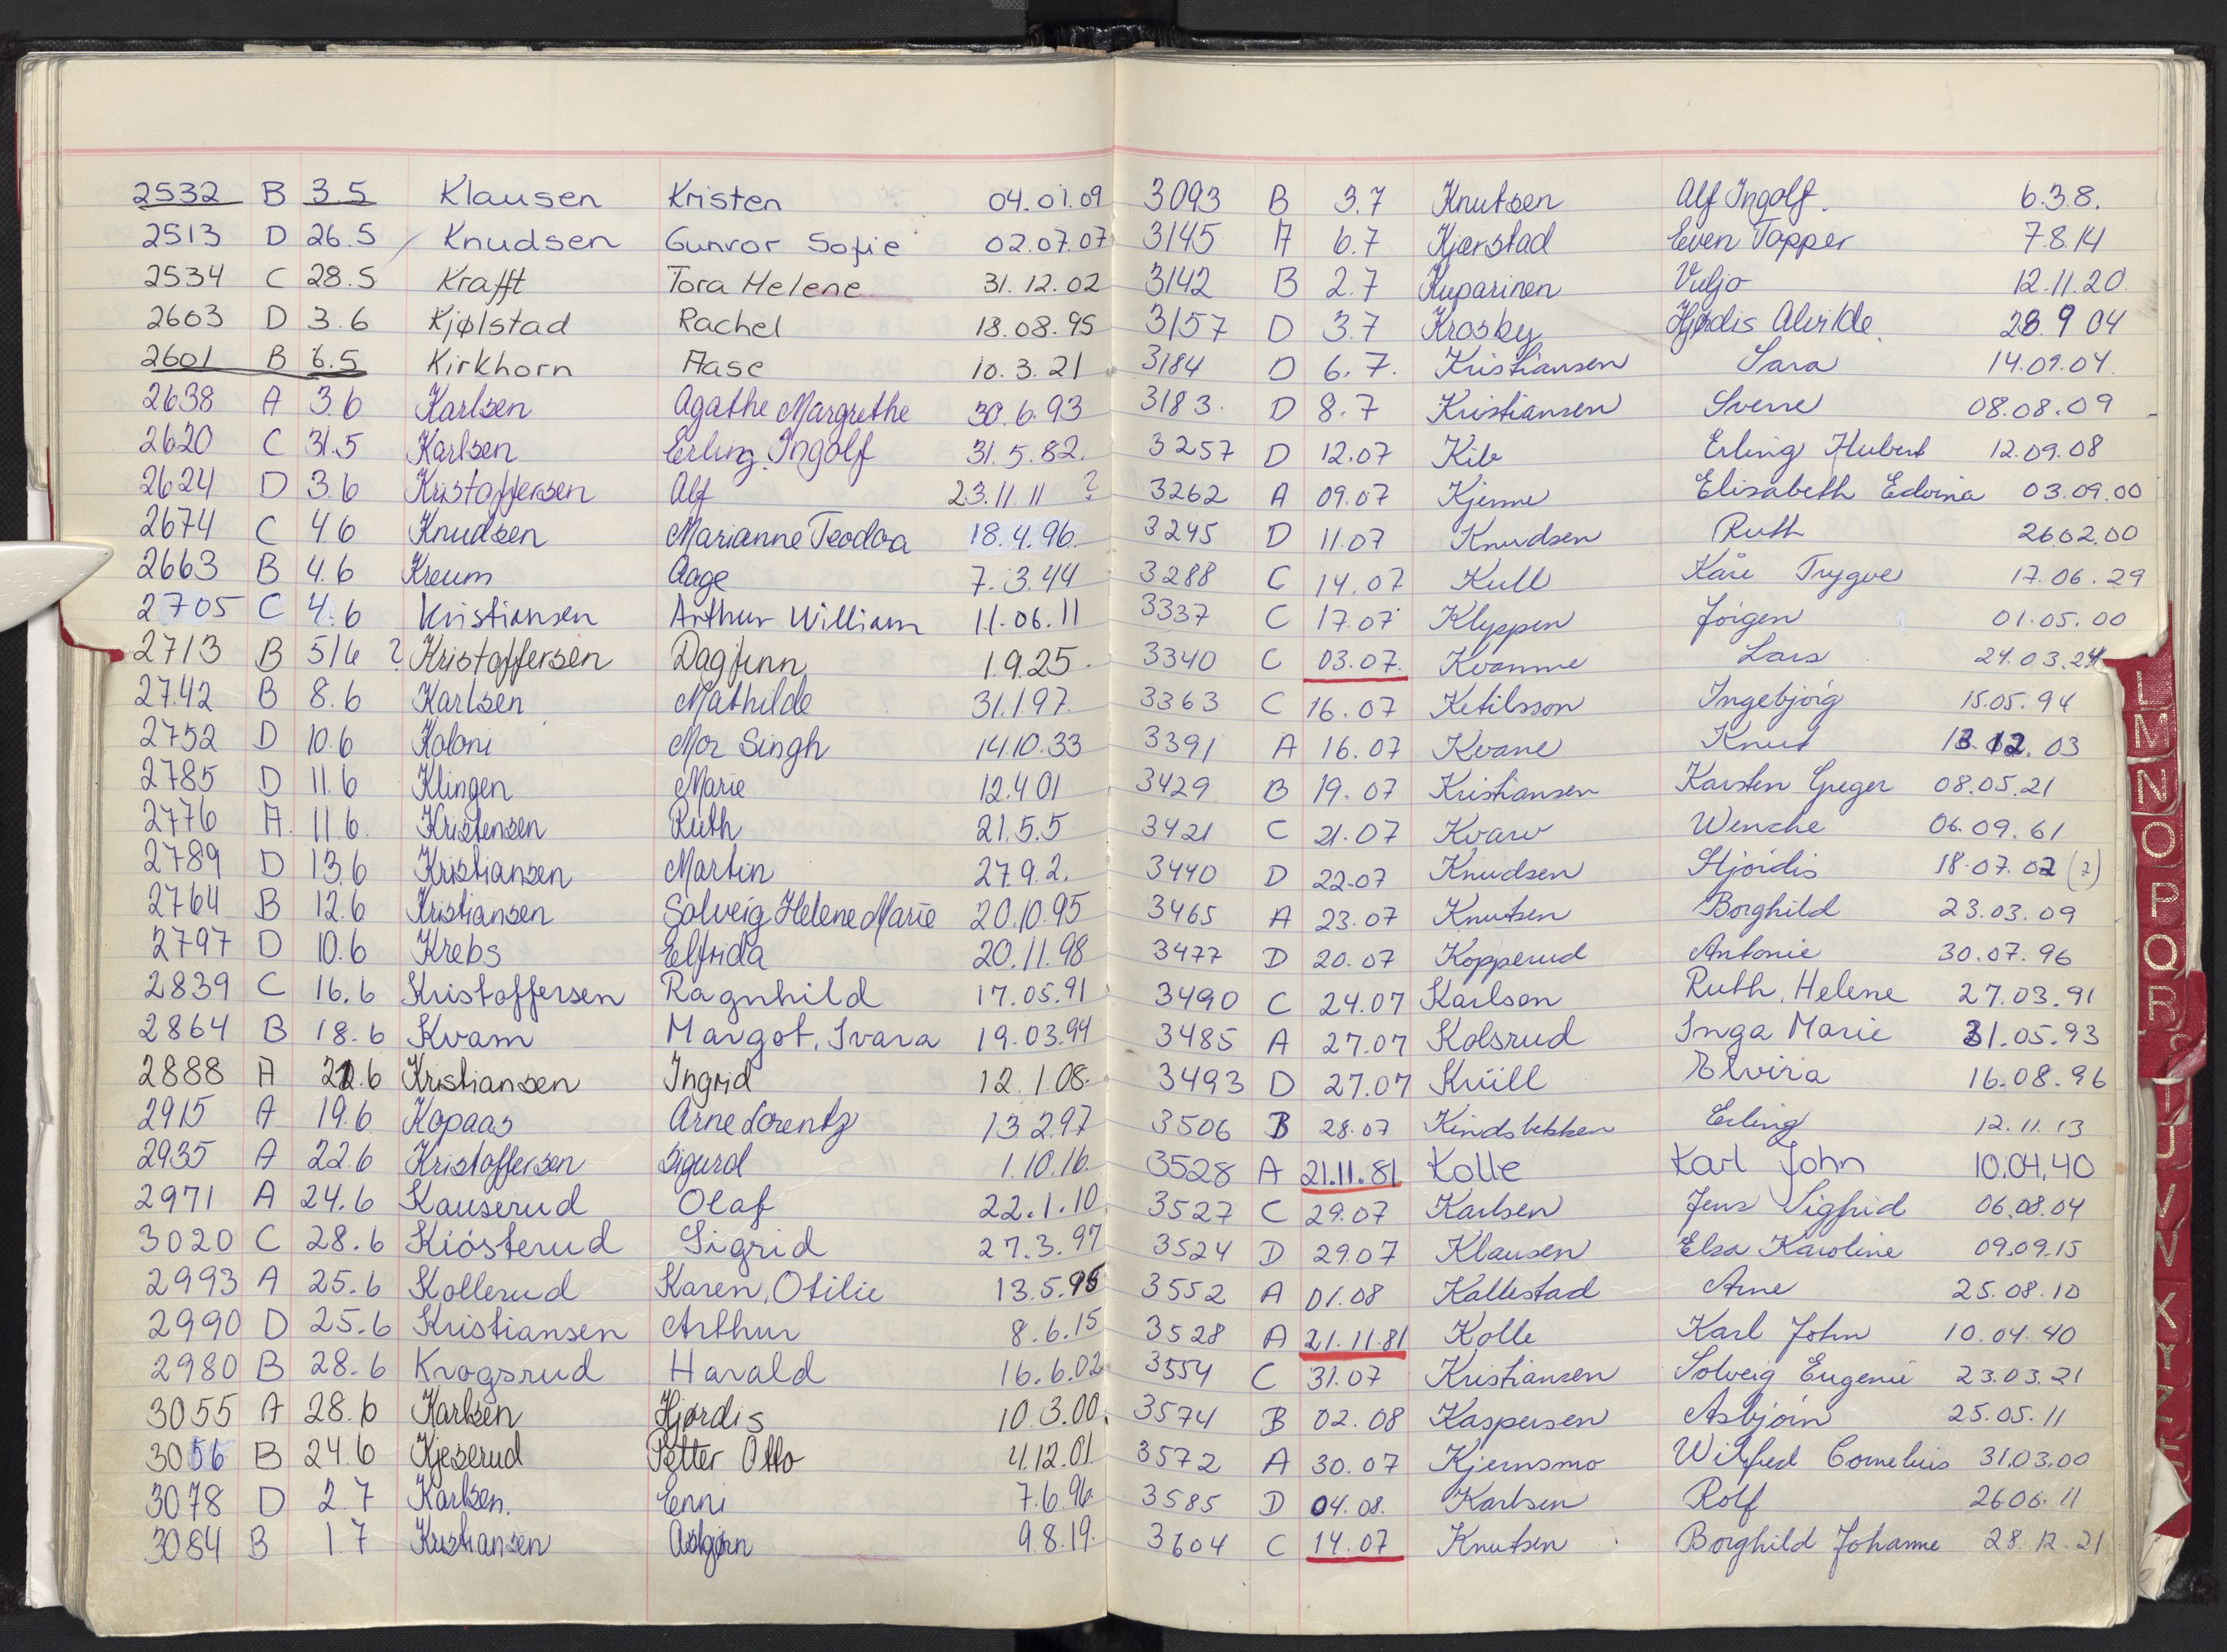 2532 B 3.5 Klausen Kristen 04.01.09
2513 D 26.5 Knudsen Gunvor Sofie 02.07.07
2534 C 28.5 Krafft Tora Helene 31.12.02
2603 D 3.6 Kjølstad Rachel 18.08.95
2601 B 6.5 Kirkhorn Aase 10.3.21
2638 A 3.6 Karlsen Agathe Margrethe 30.6.93
2620 C 31.5 Karlsen Erling Ingolf 31.5.82.
2624 D 3.6 Kristoffersen Alf 23.11.11 ?
2674 C 4.6 Knudsen Marianne Teodora 18.4.96.
2663 B 4.6 Kreum Aage 7.3.44
2705 C 4.6 Kristiansen Arthur William 11.06.11
2713 B 5/6 ? Kristoffersen Dagfinn 1.9.25.
2742 B 8.6 Karlsen Mathilde 31.1.97.
2752 D 10.6 Koloni Mor Singh 14.10.33
2785 D 11.6 Klingen Marie 12.4.01
2776 A. 11.6. Kristensen Ruth 21.5.5
2789 D 13.6 Kristiansen Martin 27.9.2.
2764 B 12.6 Kristiansen Solveig Helene Marie 20.10.95
2797 D 10.6 Krebs Elfrida 20.11.98
2839 C 16.6 Kristoffersen Ragnhild 17.05.91
2864 B 18.6 Kvam Margot, Ivara 19.03.94
2888 A 22.6 Kristiansen Ingrid 12.1.08.
2915 A 19.6 Kopaas Arne Lorentz 13.2.97
2935 A 22.6 Kristoffersen Sigurd 1.10.16.
2971 A 24.6 Kauserud Olaf 22.1.10
3020 C 28.6 Kiósterud Sigrid 27.3.97
2993 A 25.6 Kollerud Karen, Otilie 13.5.95
2990 D 25.6 Kristiansen Arthur 8.6.15
2980 B 28.6 Krogsrud Harald 16.6.02
3055 A 28.6 Karlsen Hjørdis 10.3.00.
3056 B 24.6 Kjeserud Petter Otto 4.12.01.
3078 D 2.7 Karlsen. Enni 7.6.96
3084 B 1 7 Kristiansen Asbjørn 9.8.19.
3093 B 3.7 Knutsen Alf Ingolf. 6.3.8.
3145 A 6.7 Kjærstad Even Tapper 7.8.14
3142 B 2.7 Kuparinen Viljo 12.11.20.
3157 D 3.7 Krosby Hjørdis Alvilde. 28.9 04
3184 D 6.7. Kristiansen Sara 14.09.04.
3183. D 8.7 Kristiansen Sverre 08.08.09
3257 D 12.07 Kib Erling Hubert 12.09.08
3262 A 09.07 Kjenne Elisabeth Edvina 03.09.00
3245 D 11.07 Knudsen Ruth 26.02.00
3288 C 14.07 Kull Kåre Trygve 17.06.29
3337 C 17.07 Klyppen Jørgen 01.05.00
3340 C 03.07. Kvamme Lars 24.03.24
3363 C 16.07 Ketilsson Ingebjörg 15.05.94
3391 A 16.07 Kvane Knut 13.12.03
3429 B 19.07 Kristiansen Karsten Greger 08.05.21
3421 C 21.07 Kvarv Wenche 06.09.61
3440 D 22.07 Knudsen Hjördis 18.07.02 (?)
3465 A 23.07 Knutsen Borghild 23.03.09
3477 D 20.07 Kopperud Antonie 30.07.96
3490 C 24.07 Karlson Ruth, Helene 27.03.91
3485 A 27.07 Kolsrud Inga Marie 31.05.93
3493 D 27.07 Krüll Elvira 16.08.96
3506 B 28.07 Kindsbekken Erling 12.11.13
3528 A 21.11.81 Kolle Karl John 10.04.40
3527 C 29.07 Karlsen Jens Sigfrid 06.08.04
3524 D 29.07 Klausen Elsa Karoline 09.09.15
3552 A 01.08 Kallestad Arne 25.08.10
3528 A 21.11.81 Kolle Karl John 10.04.40
3554 C 31.07 Kristiansen Solveig Eugenie 23.03.21
3574 B 02.08 Kaspersen Asbjörn 25.05.11
3572 A 30.07 Kjernsmo Wilfred Cornelius 31.03.00
3585 D 04.08. Karlsen Rolf 26.06.11
3604 C 14.07 Knutsen Borghild Johanne 28.12.21
L
M
N
O
P
Q
R
U
V
X
Y